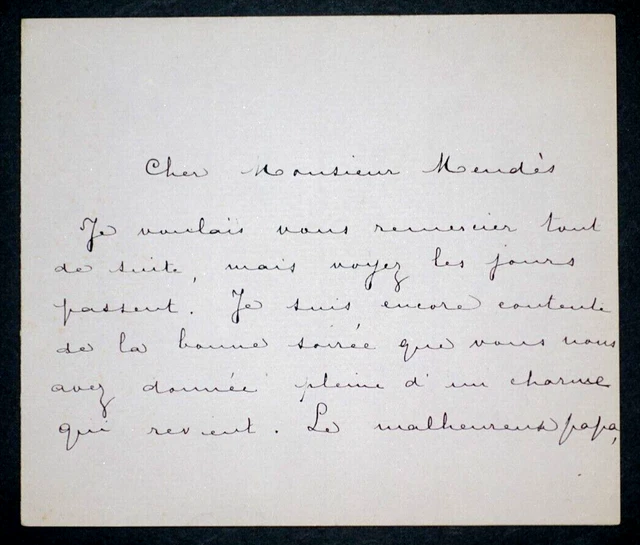 Cher Monsieur Mendès
Je voulais vous remercier tout
de suite, mais voyez les jours
passent. Je suis encore contente
de la bonne soirée que vous nous
avez donnée pleine d'un charme
qui revient. Le malheureux papa,